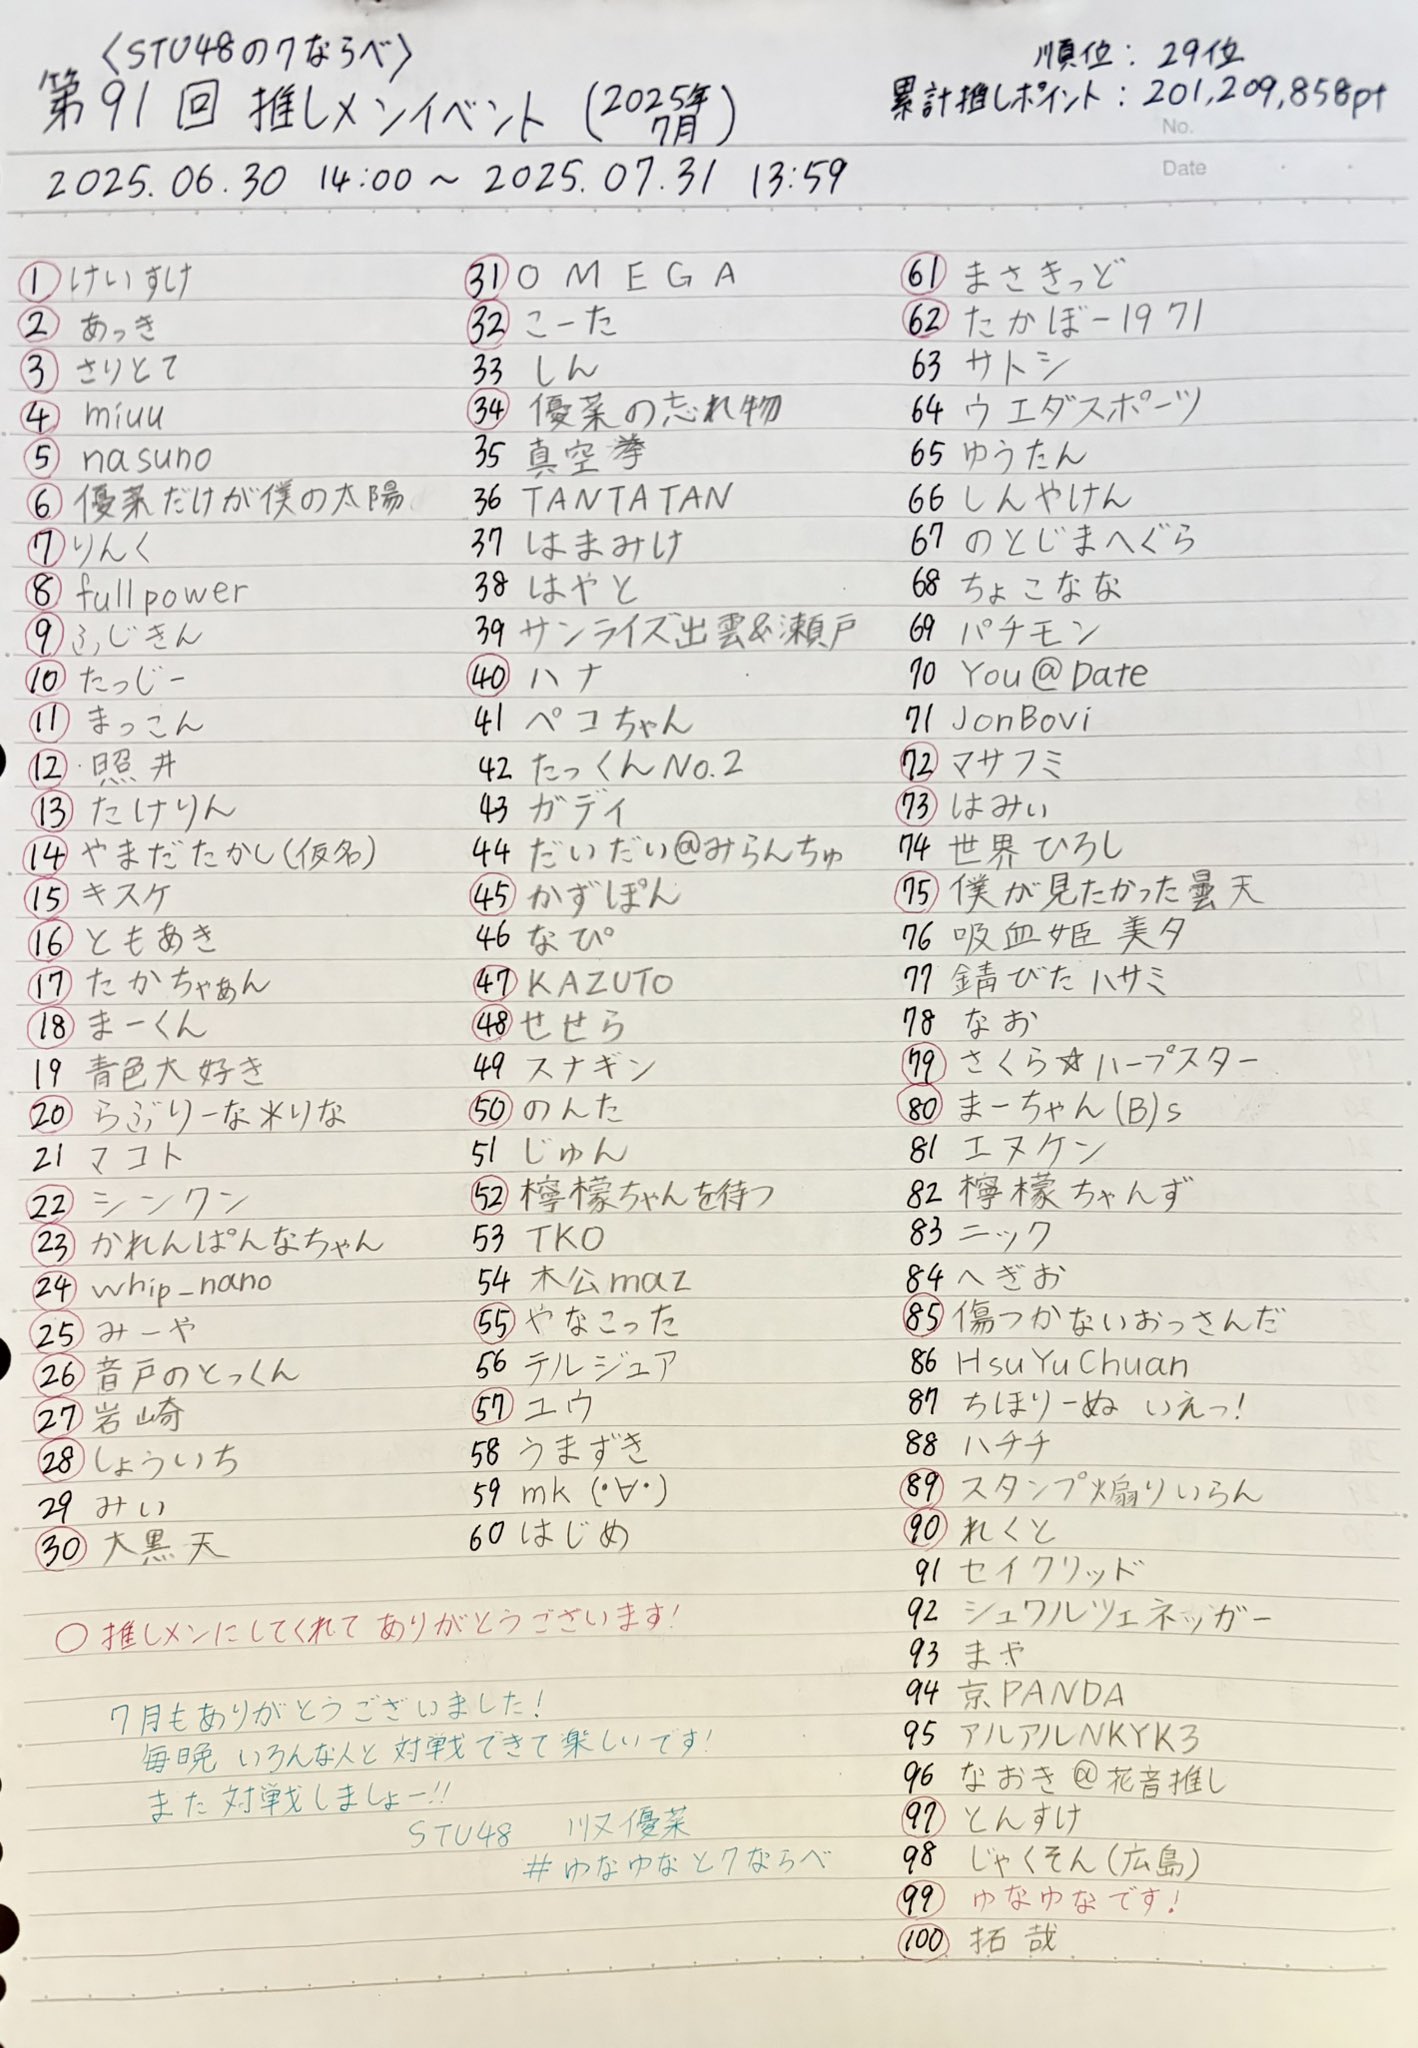 〈STU48の7ならべ〉
第91回 推しメンイベント (2025年7月)
順位：29位
累計推しポイント：201,209,858pt
No.
Date
2025.06.30 14:00 ～ 2025.07.31 13:59
1 けいすけ
2 あっき
3 さりとて
4 miuu
5 nasuno
6 優菜だけが僕の太陽
7 りんく
8 fullpower
9 ふじきん
10 たっじー
11 まっこん
12 照井
13 たけりん
14 やまだたかし(仮名)
15 キスケ
16 ともあき
17 たかちゃぁん
18 まーくん
19 青色大好き
20 らぶりーな米りな
21 マコト
22 シンクン
23 かれんぱんなちゃん
24 whip_nano
25 みーや
26 音戸のとっくん
27 岩崎
28 しょういち
29 みい
30 大黒天
31 OMEGA
32 こーた
33 しん
34 優菜の忘れ物
35 真空拳
36 TANTATAN
37 はまみけ
38 はやと
39 サンライズ出雲&瀬戸
40 ハナ
41 ペコちゃん
42 たっくんNo.2
43 ガディ
44 だいだい@みらんちゅ
45 かずぽん
46 なぴ
47 KAZUTO
48 せせら
49 スナギン
50 のんた
51 じゅん
52 檸檬ちゃんを待つ
53 TKO
54 木公maz
55 やなこった
56 テルジュア
57 ユウ
58 うまずき
59 mk (・∀・)
60 はじめ
61 まさきっど
62 たかぼー1971
63 サトシ
64 ウエダスポーツ
65 ゆうたん
66 しんやけん
67 のとじまへぐら
68 ちょこなな
69 パチモン
70 You@Date
71 JonBovi
72 マサフミ
73 はみぃ
74 世界ひろし
75 僕が見たかった曇天
76 吸血姫 美夕
77 錆びたハサミ
78 なお
79 さくら☆ハープスター
80 まーちゃん(B)s
81 エヌケン
82 檸檬ちゃんず
83 ニック
84 へぎお
85 傷つかないおっさんだ
86 HsuYuChuan
87 ちほりーぬ いえっ!
88 ハチチ
89 スタンプ煽りいらん
90 れくと
91 セイクリッド
92 シュワルツェネッガー
93 まや
94 京PANDA
95 アルアルNKYK3
96 なおき@花音推し
97 とんすけ
98 じゃくそん(広島)
99 ゆなゆなです!
100 拓哉
○推しメンにしてくれてありがとうございます!
7月もありがとうございました!
毎晩いろんな人と対戦できて楽しいです!
また対戦しましょー!!
STU48 川又優菜
#ゆなゆなと7ならべ